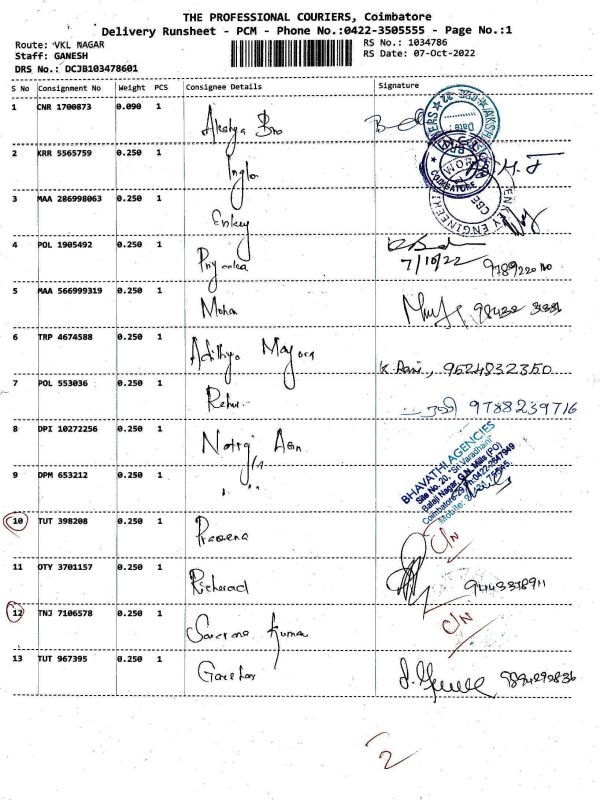 THE PROFESSIONAL COURIERS, Coimbatore
Delivery Runsheet - PCM - Phone No.:0422-3505555 - Page No.:1
Route: VKL NAGAR
RS No.: 1034786
Staff: GANESH
RS Date: 07-Oct-2022
DRS No.: DCJB103478601
S No Consignment No Weight PCS Consignee Details Signature
1 CNR 1700873 0.090 1 Akshya Bro
2 KRR 5565759 0.250 1
3 MAA 286998063 0.250 1 Enkey
4 POL 1905492 0.250 1 Priyanka
7/10/22
5 MAA 566999319 0.250 1 Mohan
6 TRP 4674588 0.250 1 Adithya
K. Rani, 9524832350
7 POL 553036 0.250 1
9788239716
8 DPI 10272256 0.250 1
BHAVATHI AGENCIES
Site No. 20, "Sri Varadhani"
Balaji Nagar, G.N. Mills (PO)
9 DPM 653212 0.250 1 " "
10 TUT 398208 0.250 1 Praveena C/N
11 OTY 3701157 0.250 1 Richerad
12 TNJ 7106578 0.250 1 Saravana Kumar C/N
13 TUT 967395 0.250 1 Ganeshan
COIMBATORE
ENKEY ENGINEERI
CBE
2